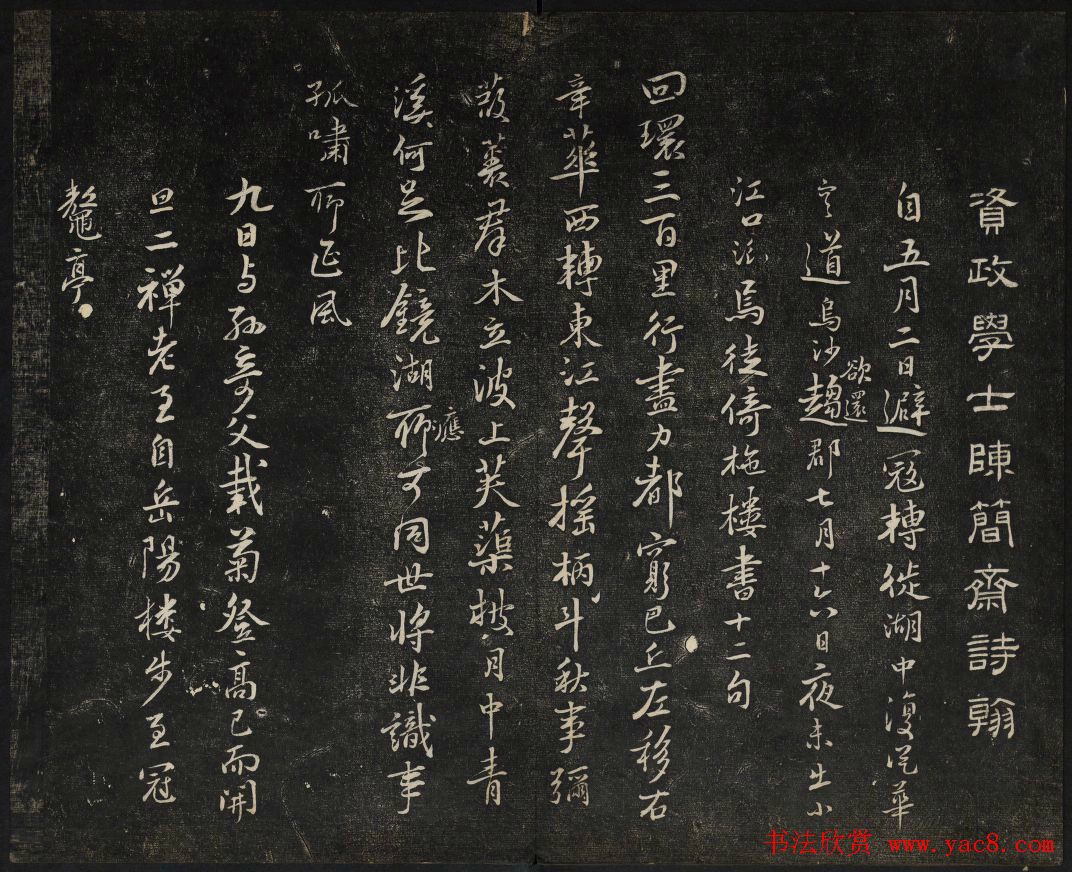 資政學士陳簡齋詩翰
自五月二日避冦轉徙湖中復從華
容道烏沙趨郡七月十六日夜半出小
欲還
江口泊焉徙倚柂樓書十二句
回環三百里行盡力都窮巴丘左移右
章華西轉東江聲搖柄斗秋事彌
葭叢羣木立波上芙蕖披月中青
溪何足比鏡湖聊可同世將非識事
應
孤嘯聊延風
九日与孫奇父載菊登高已而開
旦二禪老至自岳陽楼步至冠
鼇亭
书法欣赏 www.yac8.com